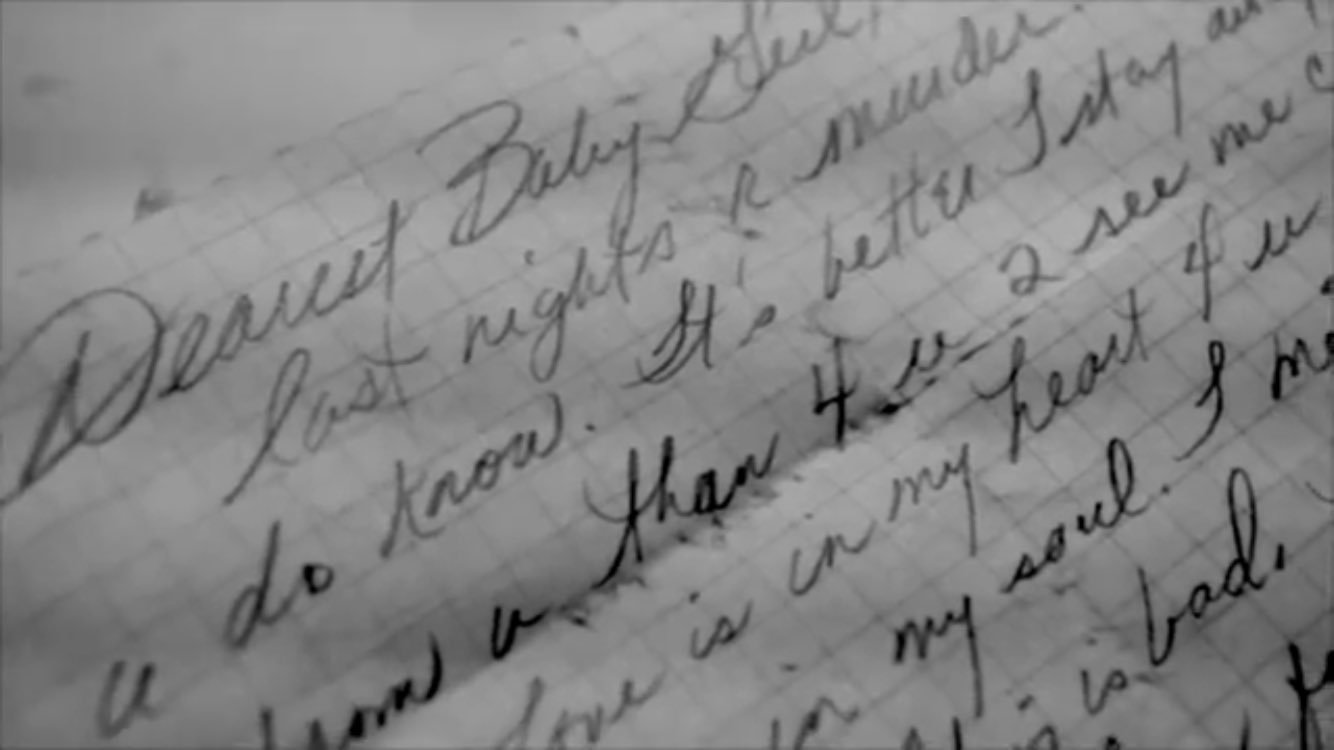 Dearest Baby Girl,
last nights r murder.
u do know. It's better I stay
from u than 4 u 2 see me
love is in my heart 4 u
in my soul. I
is bad.